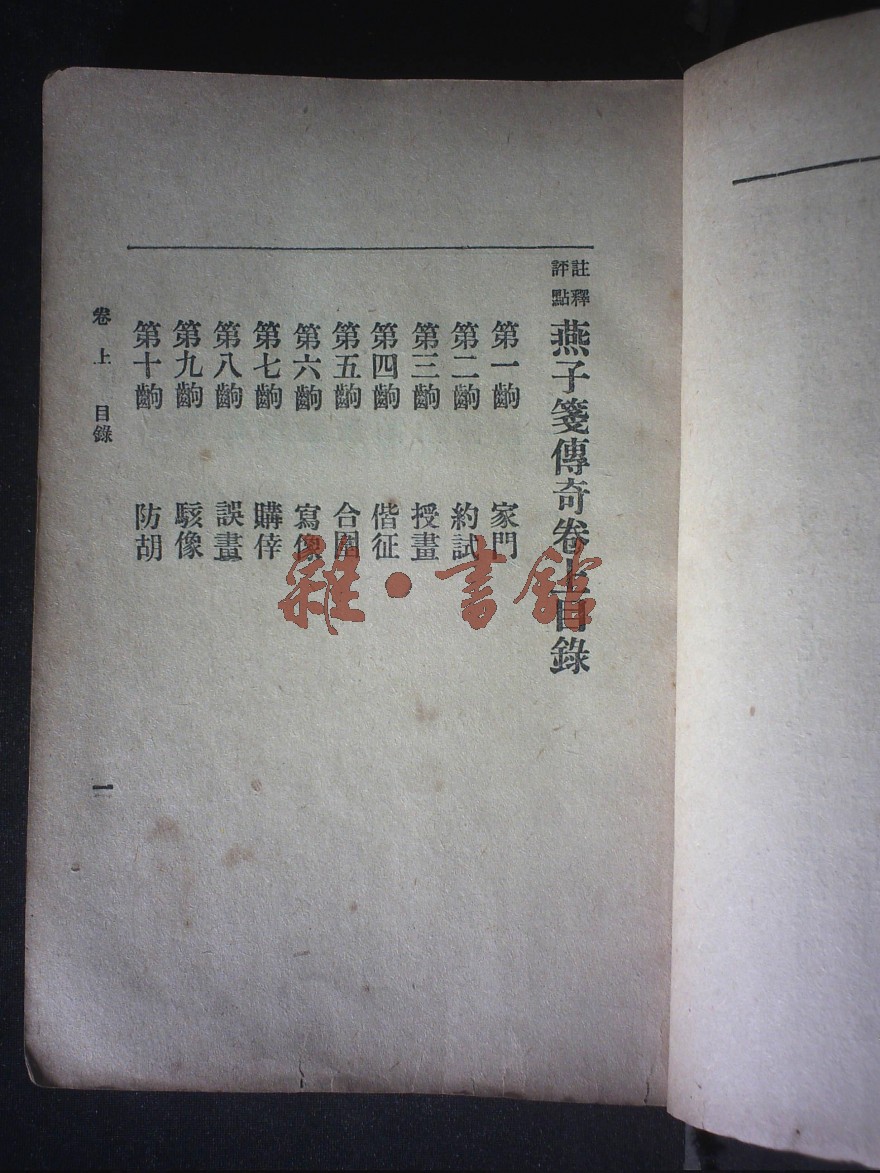 註釋
評點
燕子箋傳奇卷上目錄
第一齣 家門
第二齣 約試
第三齣 授畫
第四齣 偕征
第五齣 合圍
第六齣 寫像
第七齣 購倖
第八齣 誤畫
第九齣 駭像
第十齣 防胡
卷上 目錄
一
雜·書館